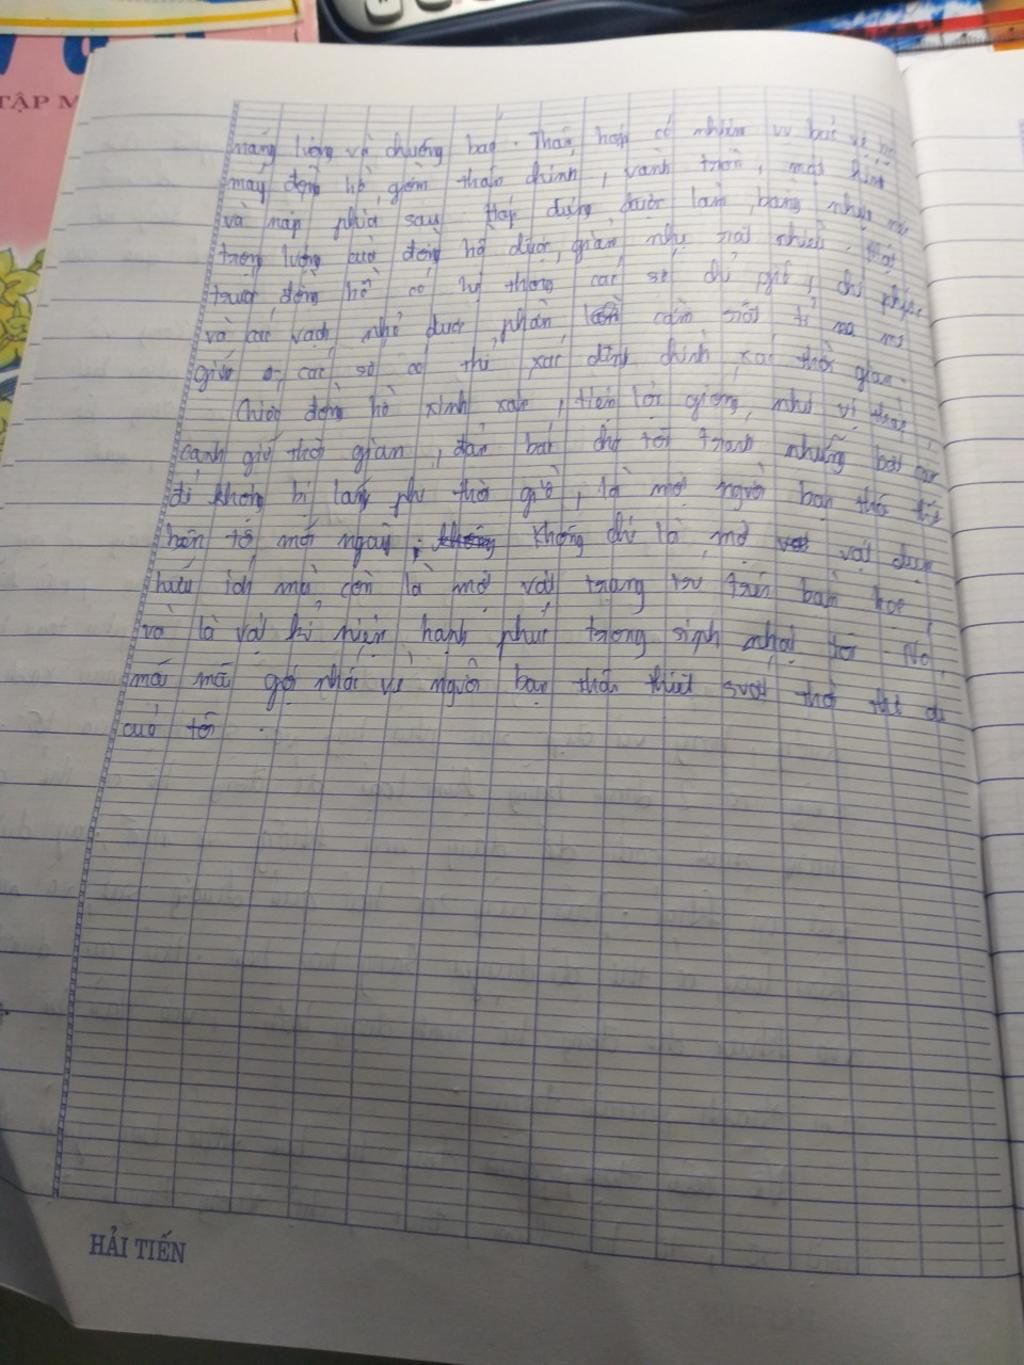 TẬP
năng lượng và chuông báo. Thân hộp có nhiệm vụ bảo vệ
máy đồng hồ, gồm thân chính, vành trên, mặt kính
và nắp phía sau. Hộp đựng được làm bằng nhựa nên
trọng lượng của đồng hồ được giảm nhẹ rất nhiều. Mặt
trước đồng hồ có hệ thống các số chỉ giờ, chỉ phút
và các vạch nhỏ được phân cách rất tỉ mỉ
giữa các số có thể xác định chính xác thời gian.
Chiếc đồng hồ xinh xắn, tiện lợi giống như vị thần
canh giữ thời gian, đảm bảo cho tôi tránh những
để không bị lãng phí thời giờ, là một người bạn thân
bên tôi mỗi ngày, không chỉ là một vật dụng
hữu ích mà còn là một vật trang trí trên bàn học
và là vật kỉ niệm hạnh phúc trong sinh nhật tôi. Nó
mãi mãi gợi nhớ về người bạn thân thiết suốt thời
của tôi.
HẢI TIẾN